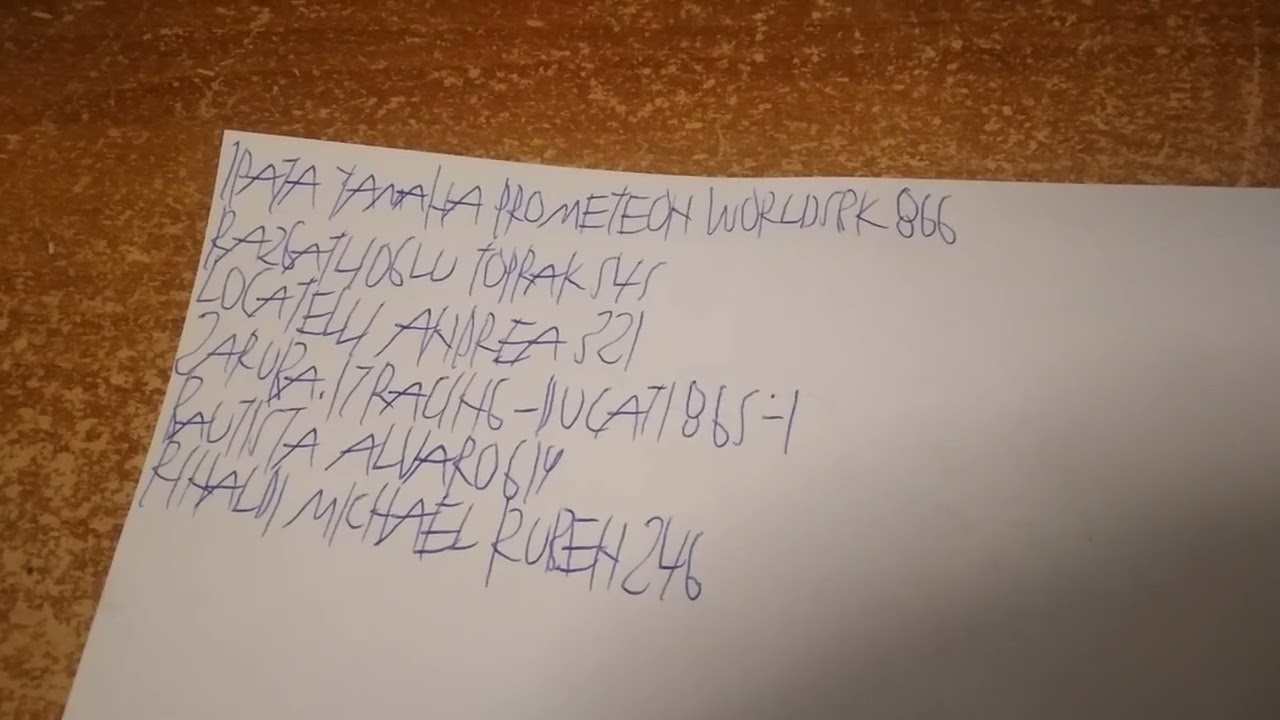 1PATA YAMAHA PROMETEON WORLDSBK 866
RAZGATLIOGLU TOPRAK 545
LOCATELLI ANDREA 321
2ARUBA.IT RACING-DUCATI 865 -1
BAUTISTA ALVARO 619
RINALDI MICHAEL RUBEN 246